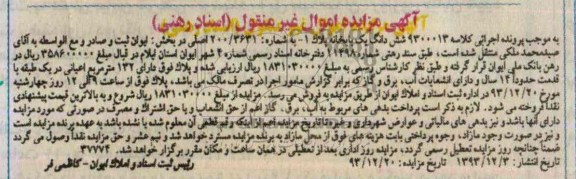 آگهی مزایده اموال غیر منقول (اسناد رهنی)
به موجب پرونده اجرائی کلاسه ۹۳۰۰۰۱۳ شش دانگ یکبابخانه پلاک ۱ - شماره: ۲۰۰/۳۶۳۱ اصلی در بخش: ایوان ثبت و صادر و مع الواسطه به آقای
صیدمحمد ملکی منتقل شده است، طبق سند رهنی شماره ۱۱۳۹۸ دفترخانه اسناد رسمی شماره ۴ شهر ایوان استان ایلام در قبال مبلغ ۳۵۸۶۰۰۰۰۰ ریال در
رهن بانک ملی ایوان قرار گرفته و طبق نظر کارشناس رسمی به مبلغ ۱۸۳۱۰۳۰۰۰۰ ریال ارزیابی شده و پلاک فوق دارای ۱۳۲ مترمربع اعیانی در یک طبقه با
قدمت حدوداً ۱۴ سال و دارای انشعابات آب، برق و گاز که برابر گزارش مامور اجرا در تصرف مالک می باشد، پلاک فوق از ساعت ۹ الی ۱۲ روز چهارشنبه
مورخ ۹۳/۱۲/۲۰ در اداره ثبت اسناد و املاک ایوان از طریق مزایده به فروش می رسد. مزایده از مبلغ ۱۸۳۱۰۳۰۰۰۰ ریال شروع و به بالاترین قیمت پیشنهادی
نقداً فروخته می شود. لازم به ذکر است پرداخت بدهی های مربوطه به آب، برق، گاز اعم از حق انشعاب و یا حق اشتراک و مصرف در صورتی که مورد مزایده
دارای آنها باشد و نیز بدهی های مالیاتی و عوارض شهرداری و غیره تا تاریخ مزایده اعم از اینکه رقم قطعی آن معلوم شده یا نشده باشد به عهده برنده مزایده است
و نیز در صورت وجود مازاد، وجوه پرداختی بابت هزینه های فوق از محل مازاد به برنده مزایده مسترد خواهد شد و نیم عشر و حق مزایده نقداً وصول می گردد
ضمناً چنانچه روز مزایده تعطیل رسمی گردد، مزایده روز اداری بعد از تعطیلی در همان ساعت و مکان مقرر برگزار خواهد شد. ۳۷۷۷۴
تاریخ انتشار: ۱۳۹۳/۱۲/۳ تاریخ مزایده: ۹۳/۱۲/۲۰ رئیس ثبت اسناد و املاک ایوان - کاظمی فر